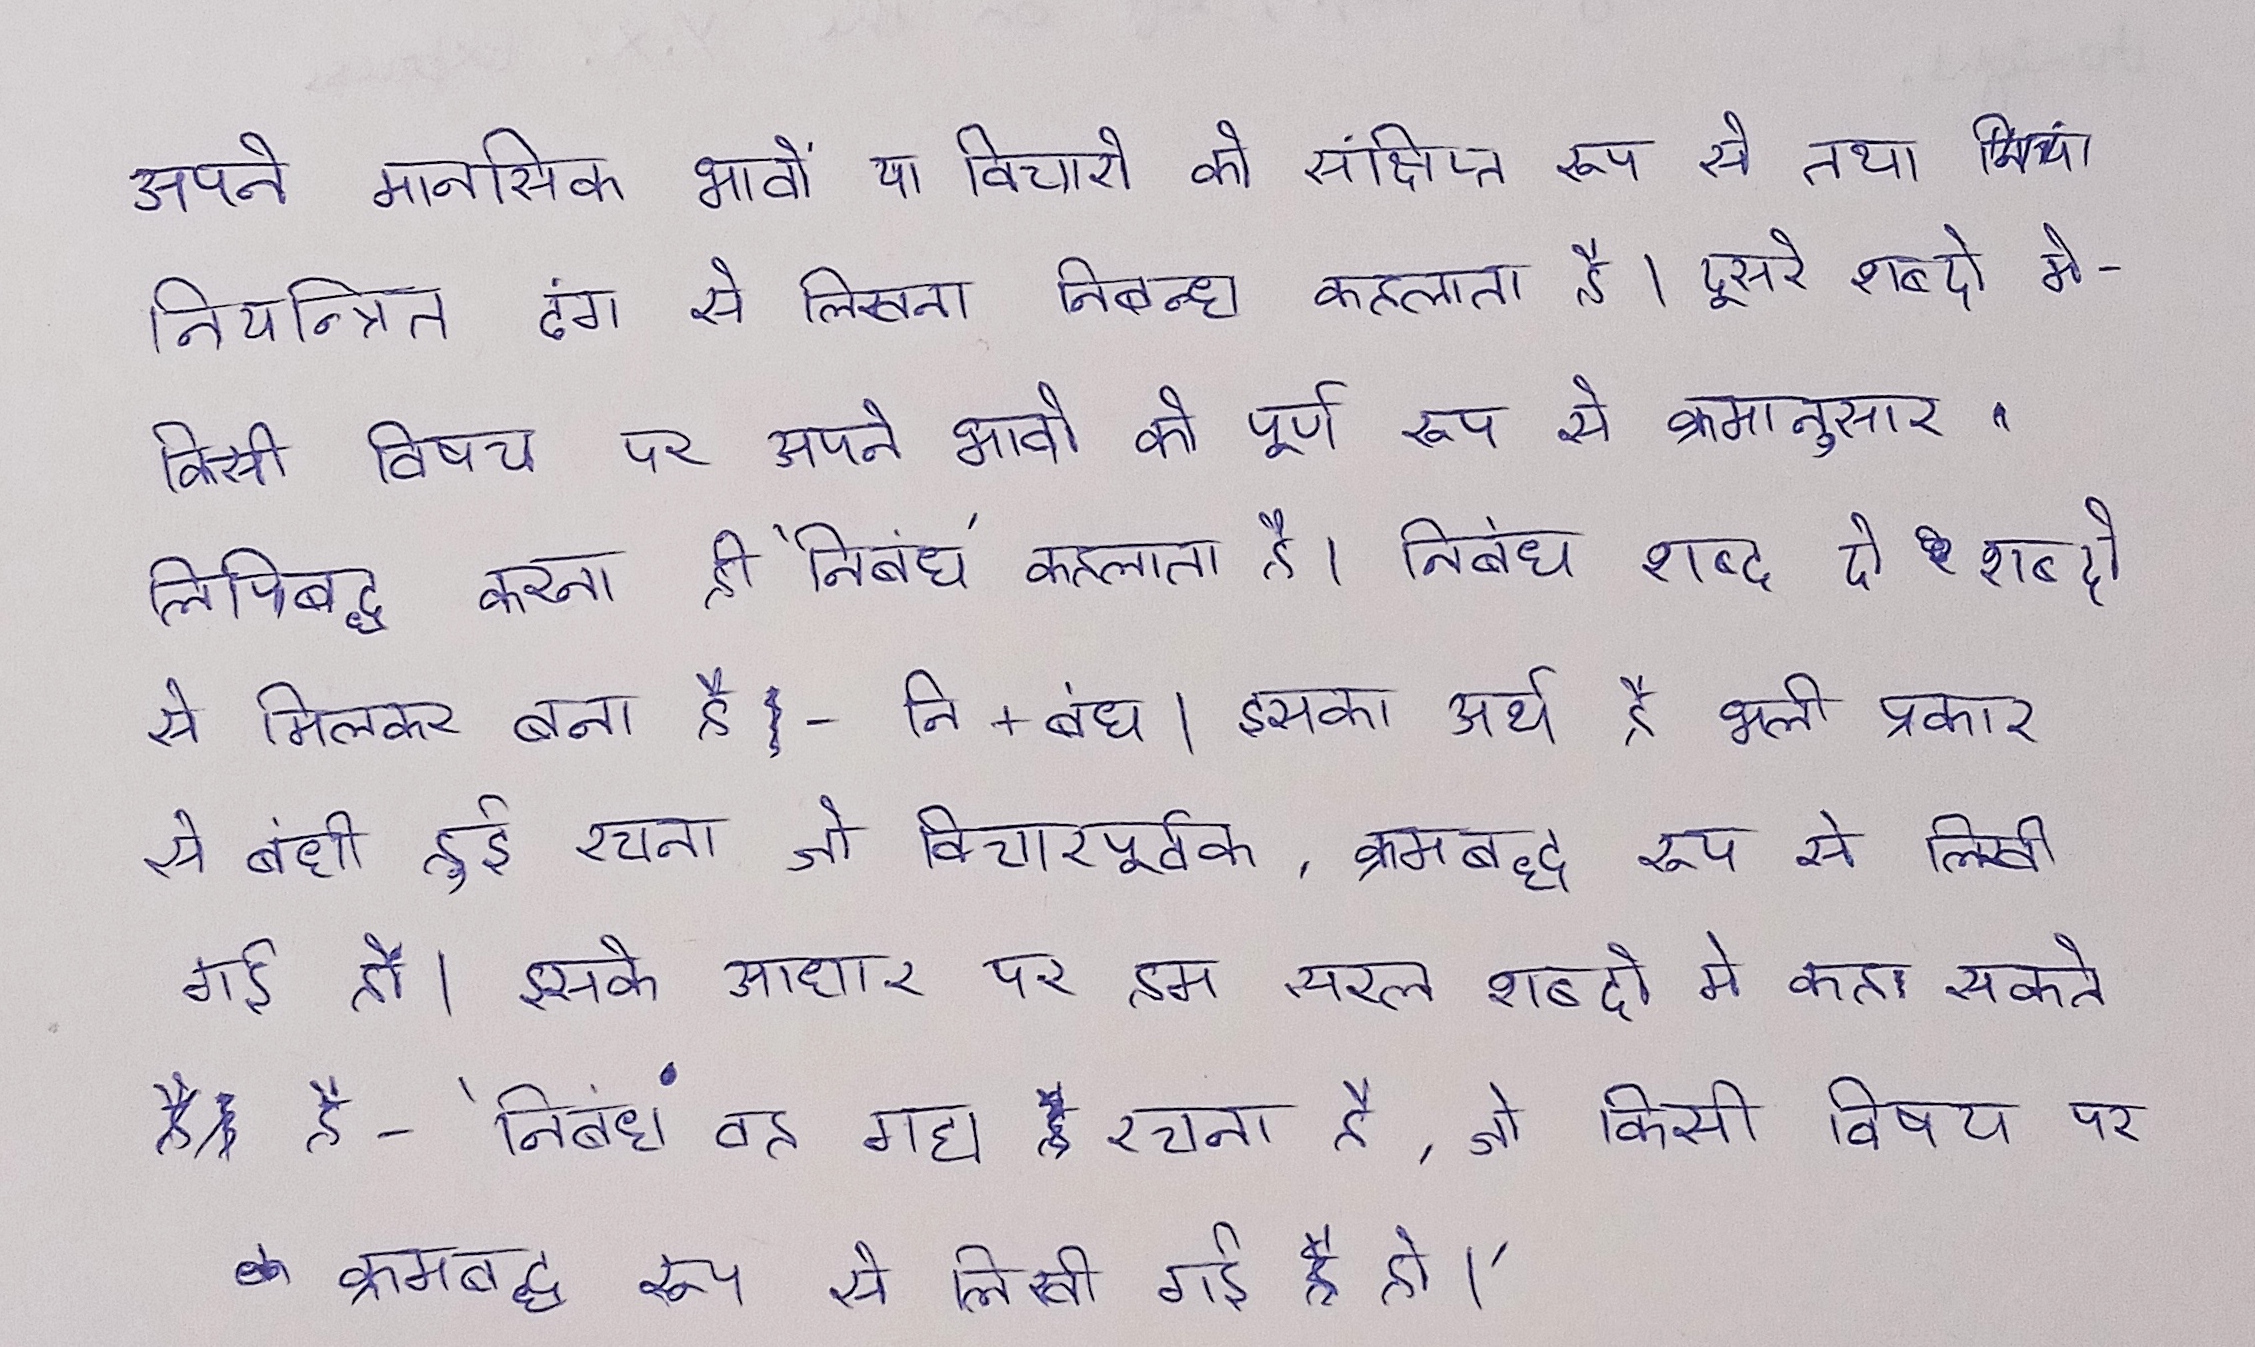 अपने मानसिक भावों या विचारो को संक्षिप्त रूप से तथा
नियन्त्रित ढंग से लिखना निबन्ध कहलाता है। दूसरे शब्दो मे-
किसी विषय पर अपने भावो को पूर्ण रूप से क्रमानुसार
लिपिबद्ध करना ही 'निबंध' कहलाता है। निबंध शब्द दो शब्दो
से मिलकर बना है - नि + बंध। इसका अर्थ है भली प्रकार
से बंधी हुई रचना जो विचारपूर्वक, क्रमबद्ध रूप से लिखी
गई हो। इसके आधार पर हम सरल शब्दो मे कह सकते
है - 'निबंध' वह गद्य रचना है, जो किसी विषय पर
क्रमबद्ध रूप से लिखी गई हो।'